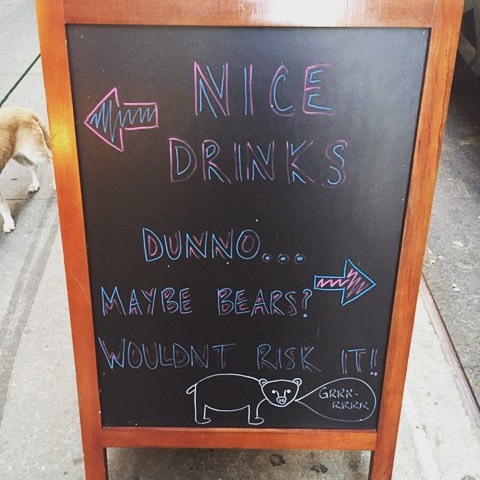 NICE
DRINKS
DUNNO...
MAYBE BEARS?
WOULDNT RISK IT!!
GRRR-
RRRR